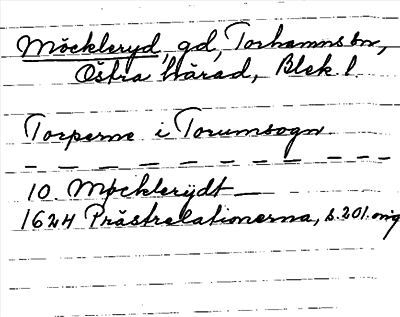 Möckleryd, gd, Torhamns sn,
Östra härad, Blek. l.
Torperne i Torumsogn
— — — — — — — — — — —
10. Møcklerÿdt —
1624 Prästrelationerna, s. 201. orig